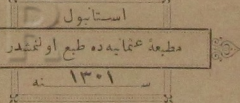 استانبول
مطبعهٔ عثمانیه ده طبع اولنمشدر
سنه ١٣٠١